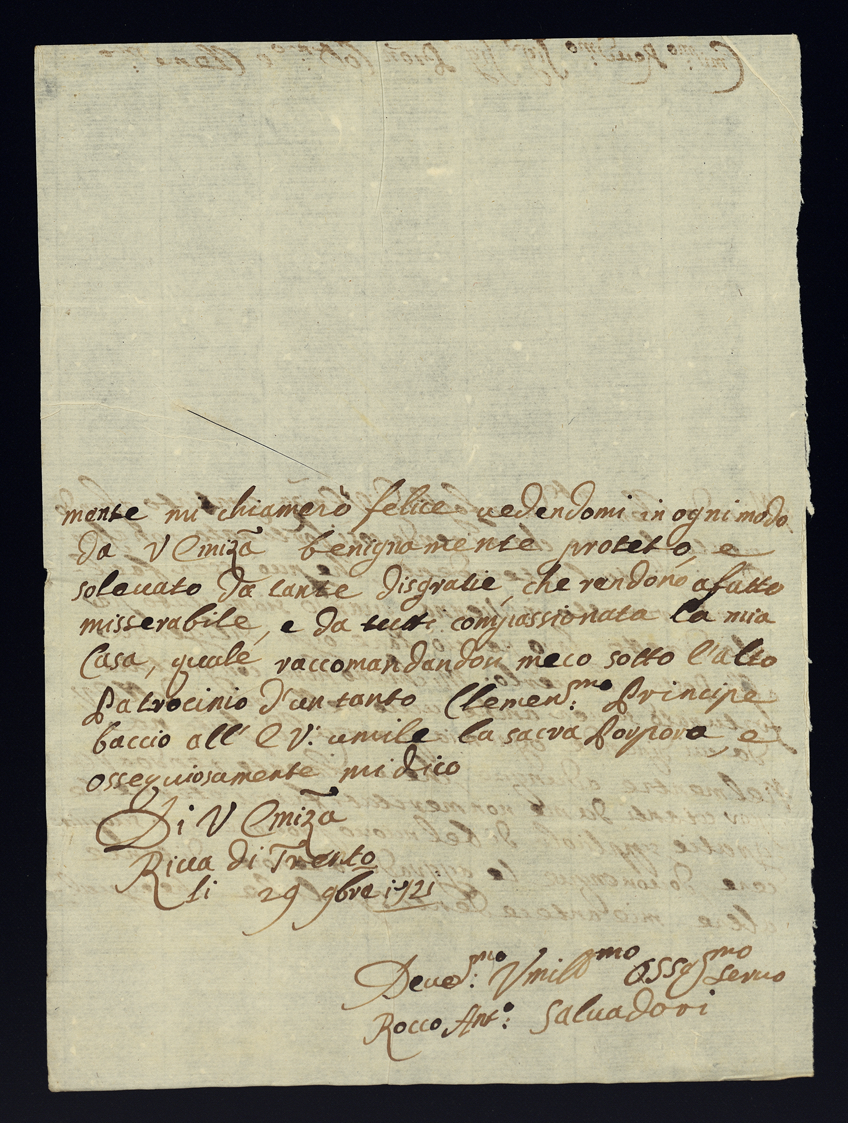 mente mi chiamerò felice vedendomi in ogni modo
da V Emiza benignamente proteto, e
solevato da tante disgratie, che rendono afatto
misserabile, e da tutti compassionata la mia
Casa, quale raccomandandou meco sotto l'alto
Patrocinio d'un tanto Clemens.mo Principe
baccio all' E V: umile la sacra Porpora, e
ossequiosamente mi dico
Di V Emiza
Riva di Trento
li 29 9bre 1721
Devo.mo Vmil.mo Osseq.mo servo
Rocco Ant.o: Salvadori